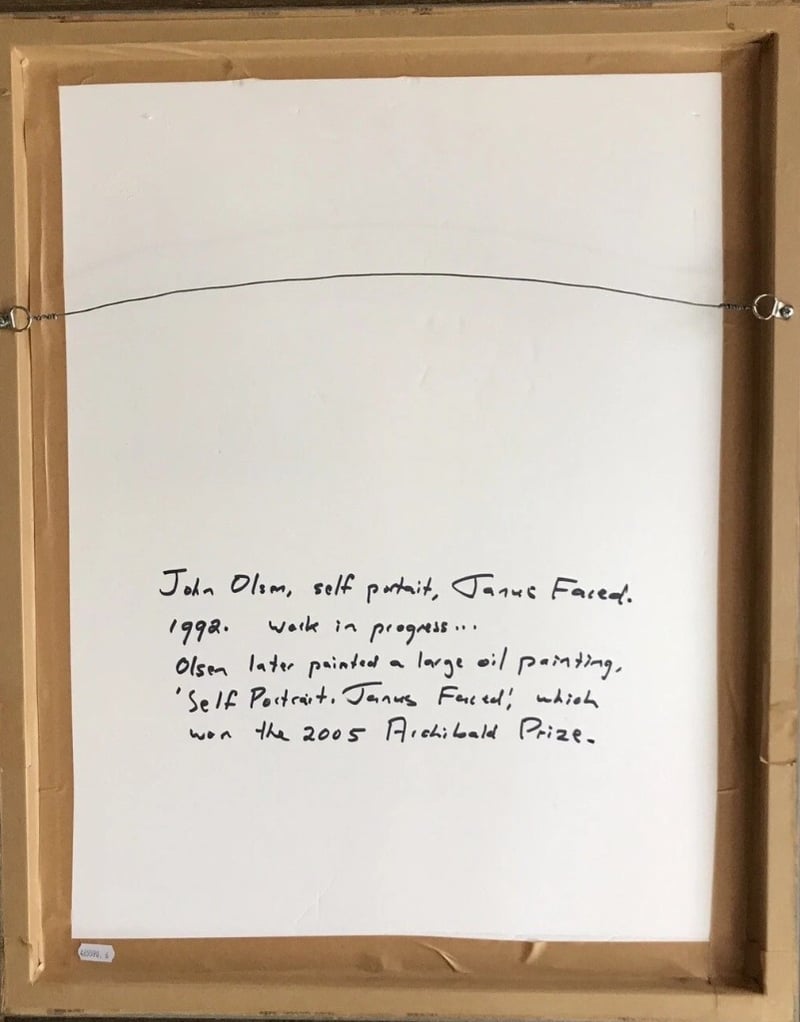 John Olsen, self portait, Janus Faced.
1992. work in progress...
Olsen later painted a large oil painting,
'Self Portrait. Janus Faced', which
won the 2005 Archibald Prize.